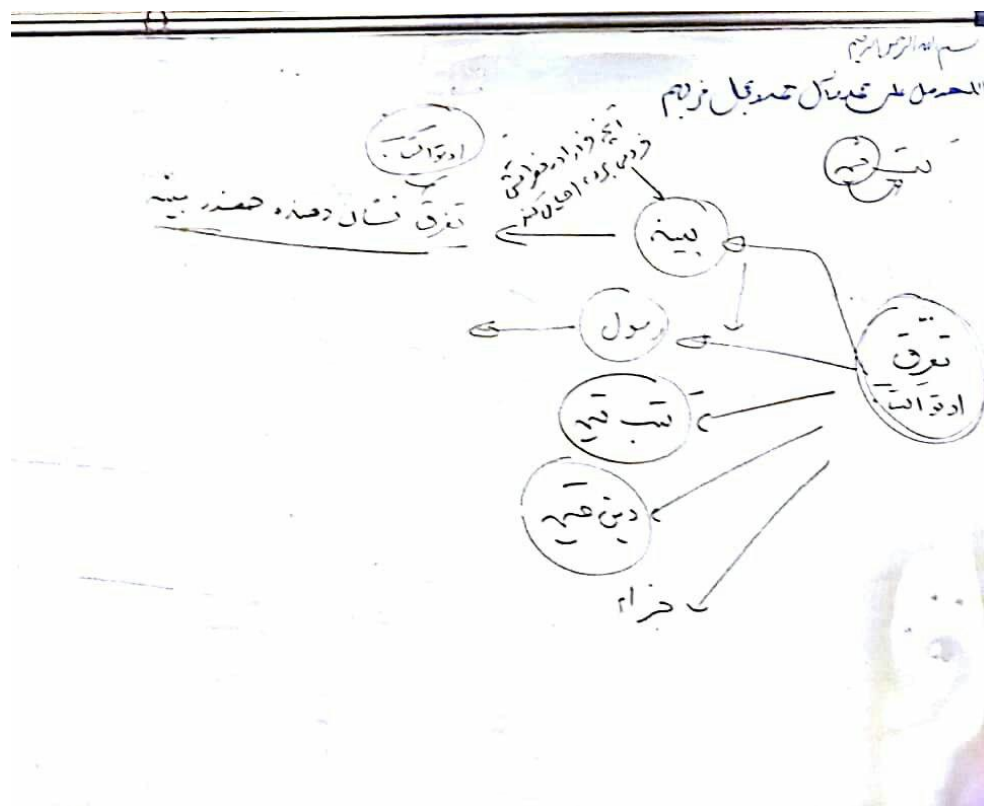 بسم الله الرحمن الرحیم
اللهم صل علی محمد و آل محمد و عجل فرجهم
کتب قیمه
اوتوا الکتب
آنچه فرد را در
فرو می‌برد،
بینه
تفرق نشان دهنده حضور بینه
رسول
تفرق
اوتوا الکتب
کتب قیمه
دین قیمه
جزاء